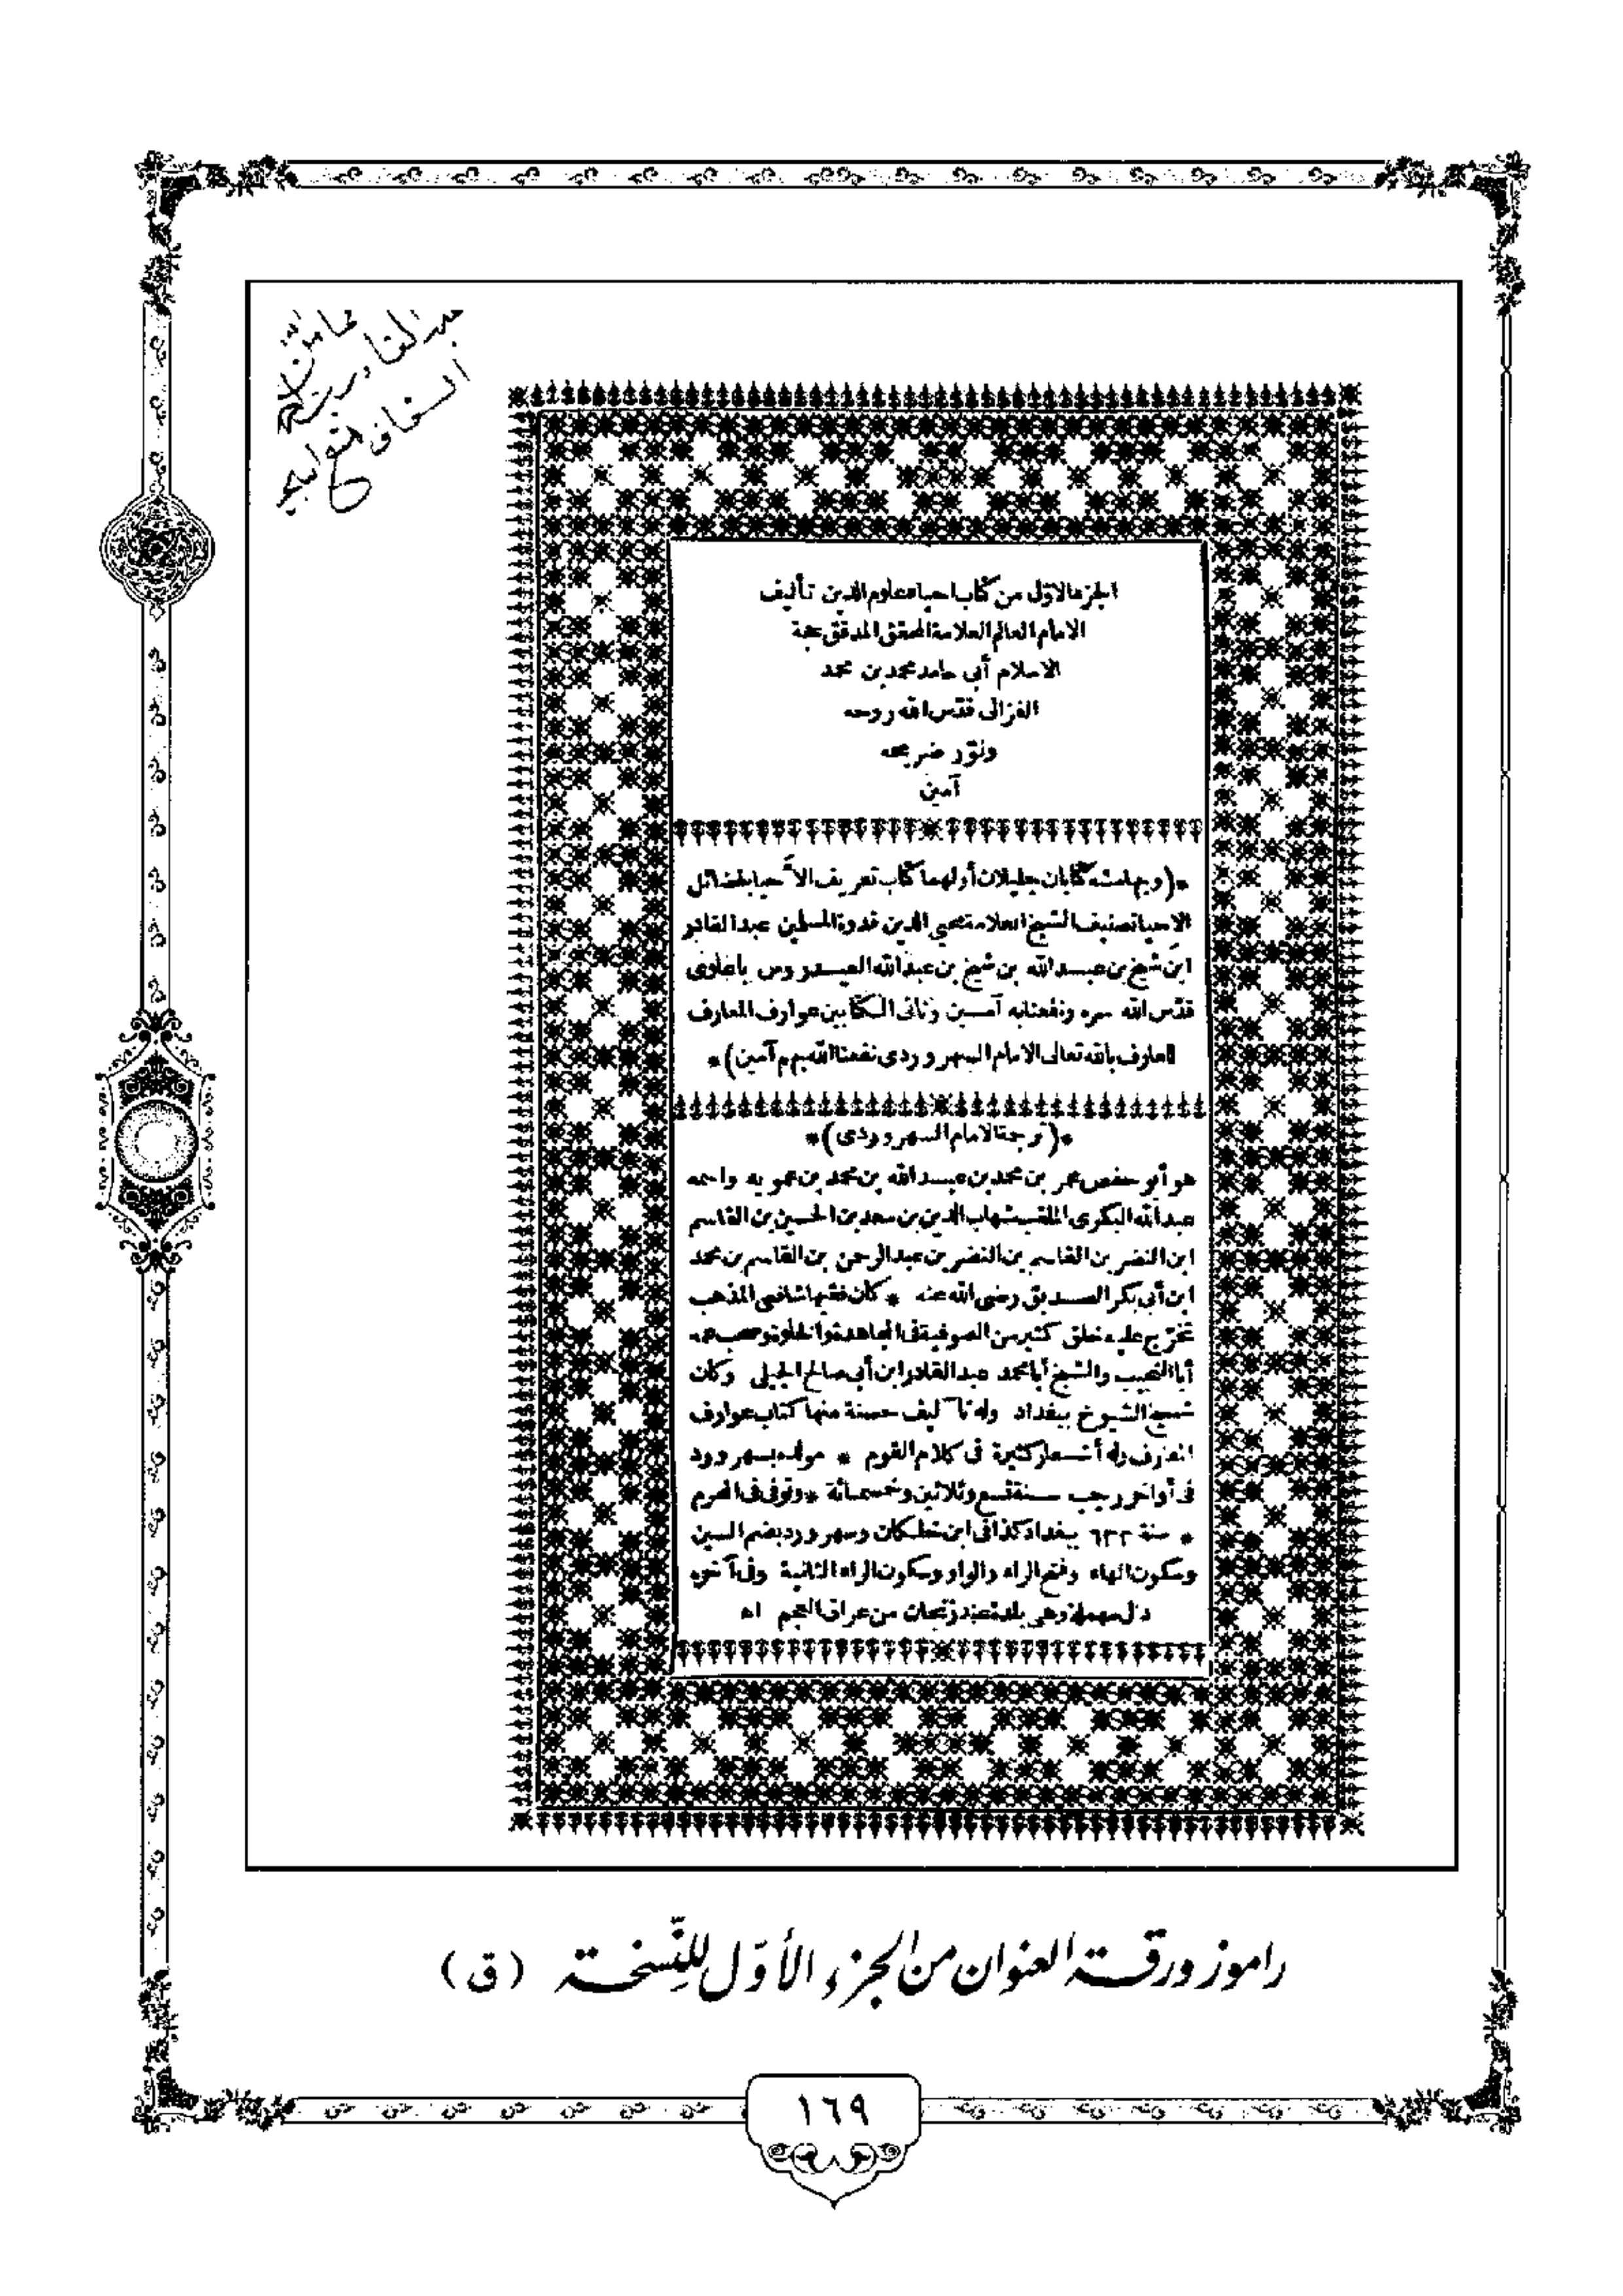 عبد القادر بن
السقاف
الجزء الاول من كتاب احياء علوم الدين تأليف
الامام العالم العلامة المحقق المدقق حجة
الاسلام أبي حامد محمد بن محمد
الغزالى قدّس الله روحه
ونوّر ضريحه
آمين
*(وبهامشه كتابان جليلان أولهما كتاب تعريف الاحيا بفضائل
الاحيا تصنيف الشيخ العلامة محيي الدين قدوة المسلمين عبد القادر
ابن شيخ بن عبد الله بن شيخ بن عبد الله العيدروس باعلوى
قدّس الله سره ونفعنا به آمين وثانى الكتابين عوارف المعارف
للعارف بالله تعالى الامام السهروردى نفعنا الله بهم آمين)*
*(ترجمة الامام السهروردى)*
هو أبو حفص عمر بن محمد بن عبد الله بن محمد بن عمويه واسمه
عبد الله البكرى الملقب شهاب الدين بن سعد بن الحسين بن القاسم
ابن النضر بن القاسم بن النضر بن عبد الرحمن بن القاسم بن محمد
ابن أبى بكر الصديق رضى الله عنه * كان فقيها شافعى المذهب
تخرّج عليه خلق كثير من الصوفية فى المجاهدة والخلوة وصحب عمه
أبا النجيب والشيخ أبا محمد عبد القادر ابن أبى صالح الجيلى وكان
شيخ الشيوخ ببغداد وله تآليف حسنة منها كتاب عوارف
المعارف وله أشعار كثيرة فى كلام القوم * مولده بسهرورد
فى أواخر رجب سنة تسع وثلاثين وخمسمائة * وتوفى فى المحرم
* سنة ٦٣٢ ببغداد كذا فى ابن خلكان وسهرورد بضم السين
وسكون الهاء وفتح الراء والواو وسكون الراء الثانية وفى آخره
دال مهملة وهى بلدة عند زنجان من عراق العجم اه
راموز ورقة العنوان من الجزء الأوّل للنّسخة (ق)
١٦٩